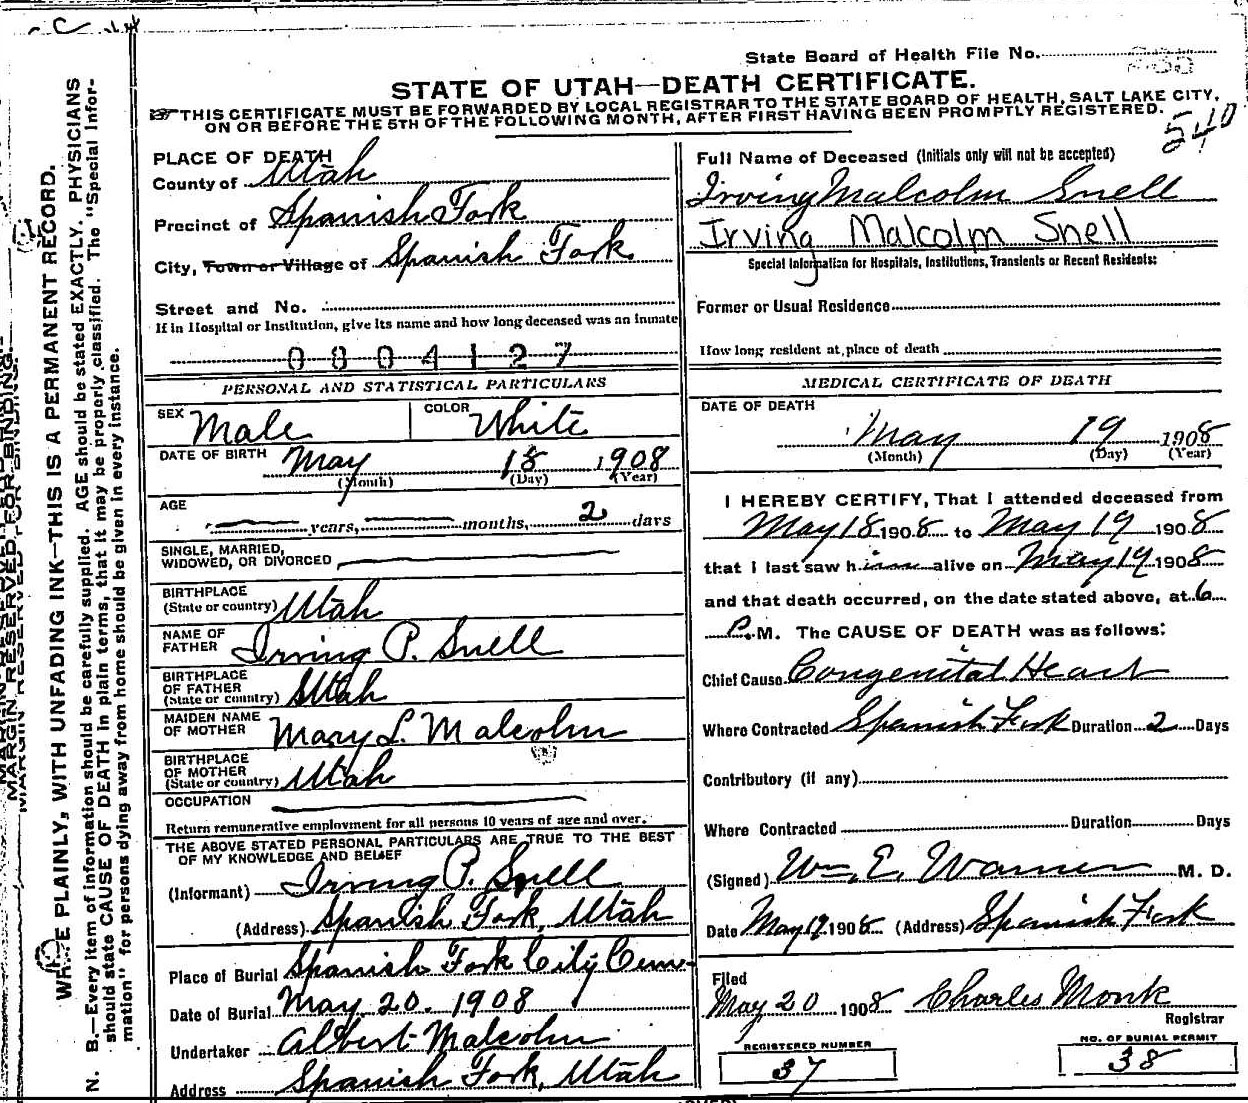 State Board of Health File No.
STATE OF UTAH—DEATH CERTIFICATE.
THIS CERTIFICATE MUST BE FORWARDED BY LOCAL REGISTRAR TO THE STATE BOARD OF HEALTH, SALT LAKE CITY,
ON OR BEFORE THE 5TH OF THE FOLLOWING MONTH, AFTER FIRST HAVING BEEN PROMPTLY REGISTERED.
540
PLACE OF DEATH
County of Utah
Precinct of Spanish Fork
City, Town or Village of Spanish Fork
Street and No.
If in Hospital or Institution, give its name and how long deceased was an inmate
0804127
PERSONAL AND STATISTICAL PARTICULARS
SEX Male COLOR White
DATE OF BIRTH May 18 1908
(Month) (Day) (Year)
AGE years, months, 2 days
SINGLE, MARRIED,
WIDOWED, OR DIVORCED
BIRTHPLACE
(State or country) Utah
NAME OF
FATHER Irving P. Snell
BIRTHPLACE
OF FATHER
(State or country) Utah
MAIDEN NAME
OF MOTHER Mary L. Malcolm
BIRTHPLACE
OF MOTHER
(State or country) Utah
OCCUPATION
Return remunerative employment for all persons 10 years of age and over.
THE ABOVE STATED PERSONAL PARTICULARS ARE TRUE TO THE BEST
OF MY KNOWLEDGE AND BELIEF
(Informant) Irving P. Snell
(Address) Spanish Fork, Utah
Place of Burial Spanish Fork City Cem-
Date of Burial May 20. 1908
Undertaker Albert Malcolm
Address Spanish Fork, Utah
Full Name of Deceased (Initials only will not be accepted)
Irving Malcolm Snell
Irving Malcolm Snell
Special Information for Hospitals, Institutions, Transients or Recent Residents:
Former or Usual Residence
How long resident at place of death
MEDICAL CERTIFICATE OF DEATH
DATE OF DEATH
May 19 1908
(Month) (Day) (Year)
I HEREBY CERTIFY, That I attended deceased from
May 18 1908 to May 19 1908
that I last saw him alive on May 19 1908
and that death occurred, on the date stated above, at 6
P.M. The CAUSE OF DEATH was as follows:
Chief Cause Congenital Heart
Where Contracted Spanish Fork Duration 2 Days
Contributory (if any)
Where Contracted Duration Days
(Signed) Wm. E. Warner M. D.
Date May 19 1908 (Address) Spanish Fork
Filed
May 20 1908 Charles Monk
Registrar
REGISTERED NUMBER
37
NO. OF BURIAL PERMIT
38
MARGIN RESERVED FOR BINDING.
WRITE PLAINLY, WITH UNFADING INK—THIS IS A PERMANENT RECORD.
N. B.—Every item of information should be carefully supplied. AGE should be stated EXACTLY. PHYSICIANS
should state CAUSE OF DEATH in plain terms, that it may be properly classified. The "Special Infor-
mation" for persons dying away from home should be given in every instance.